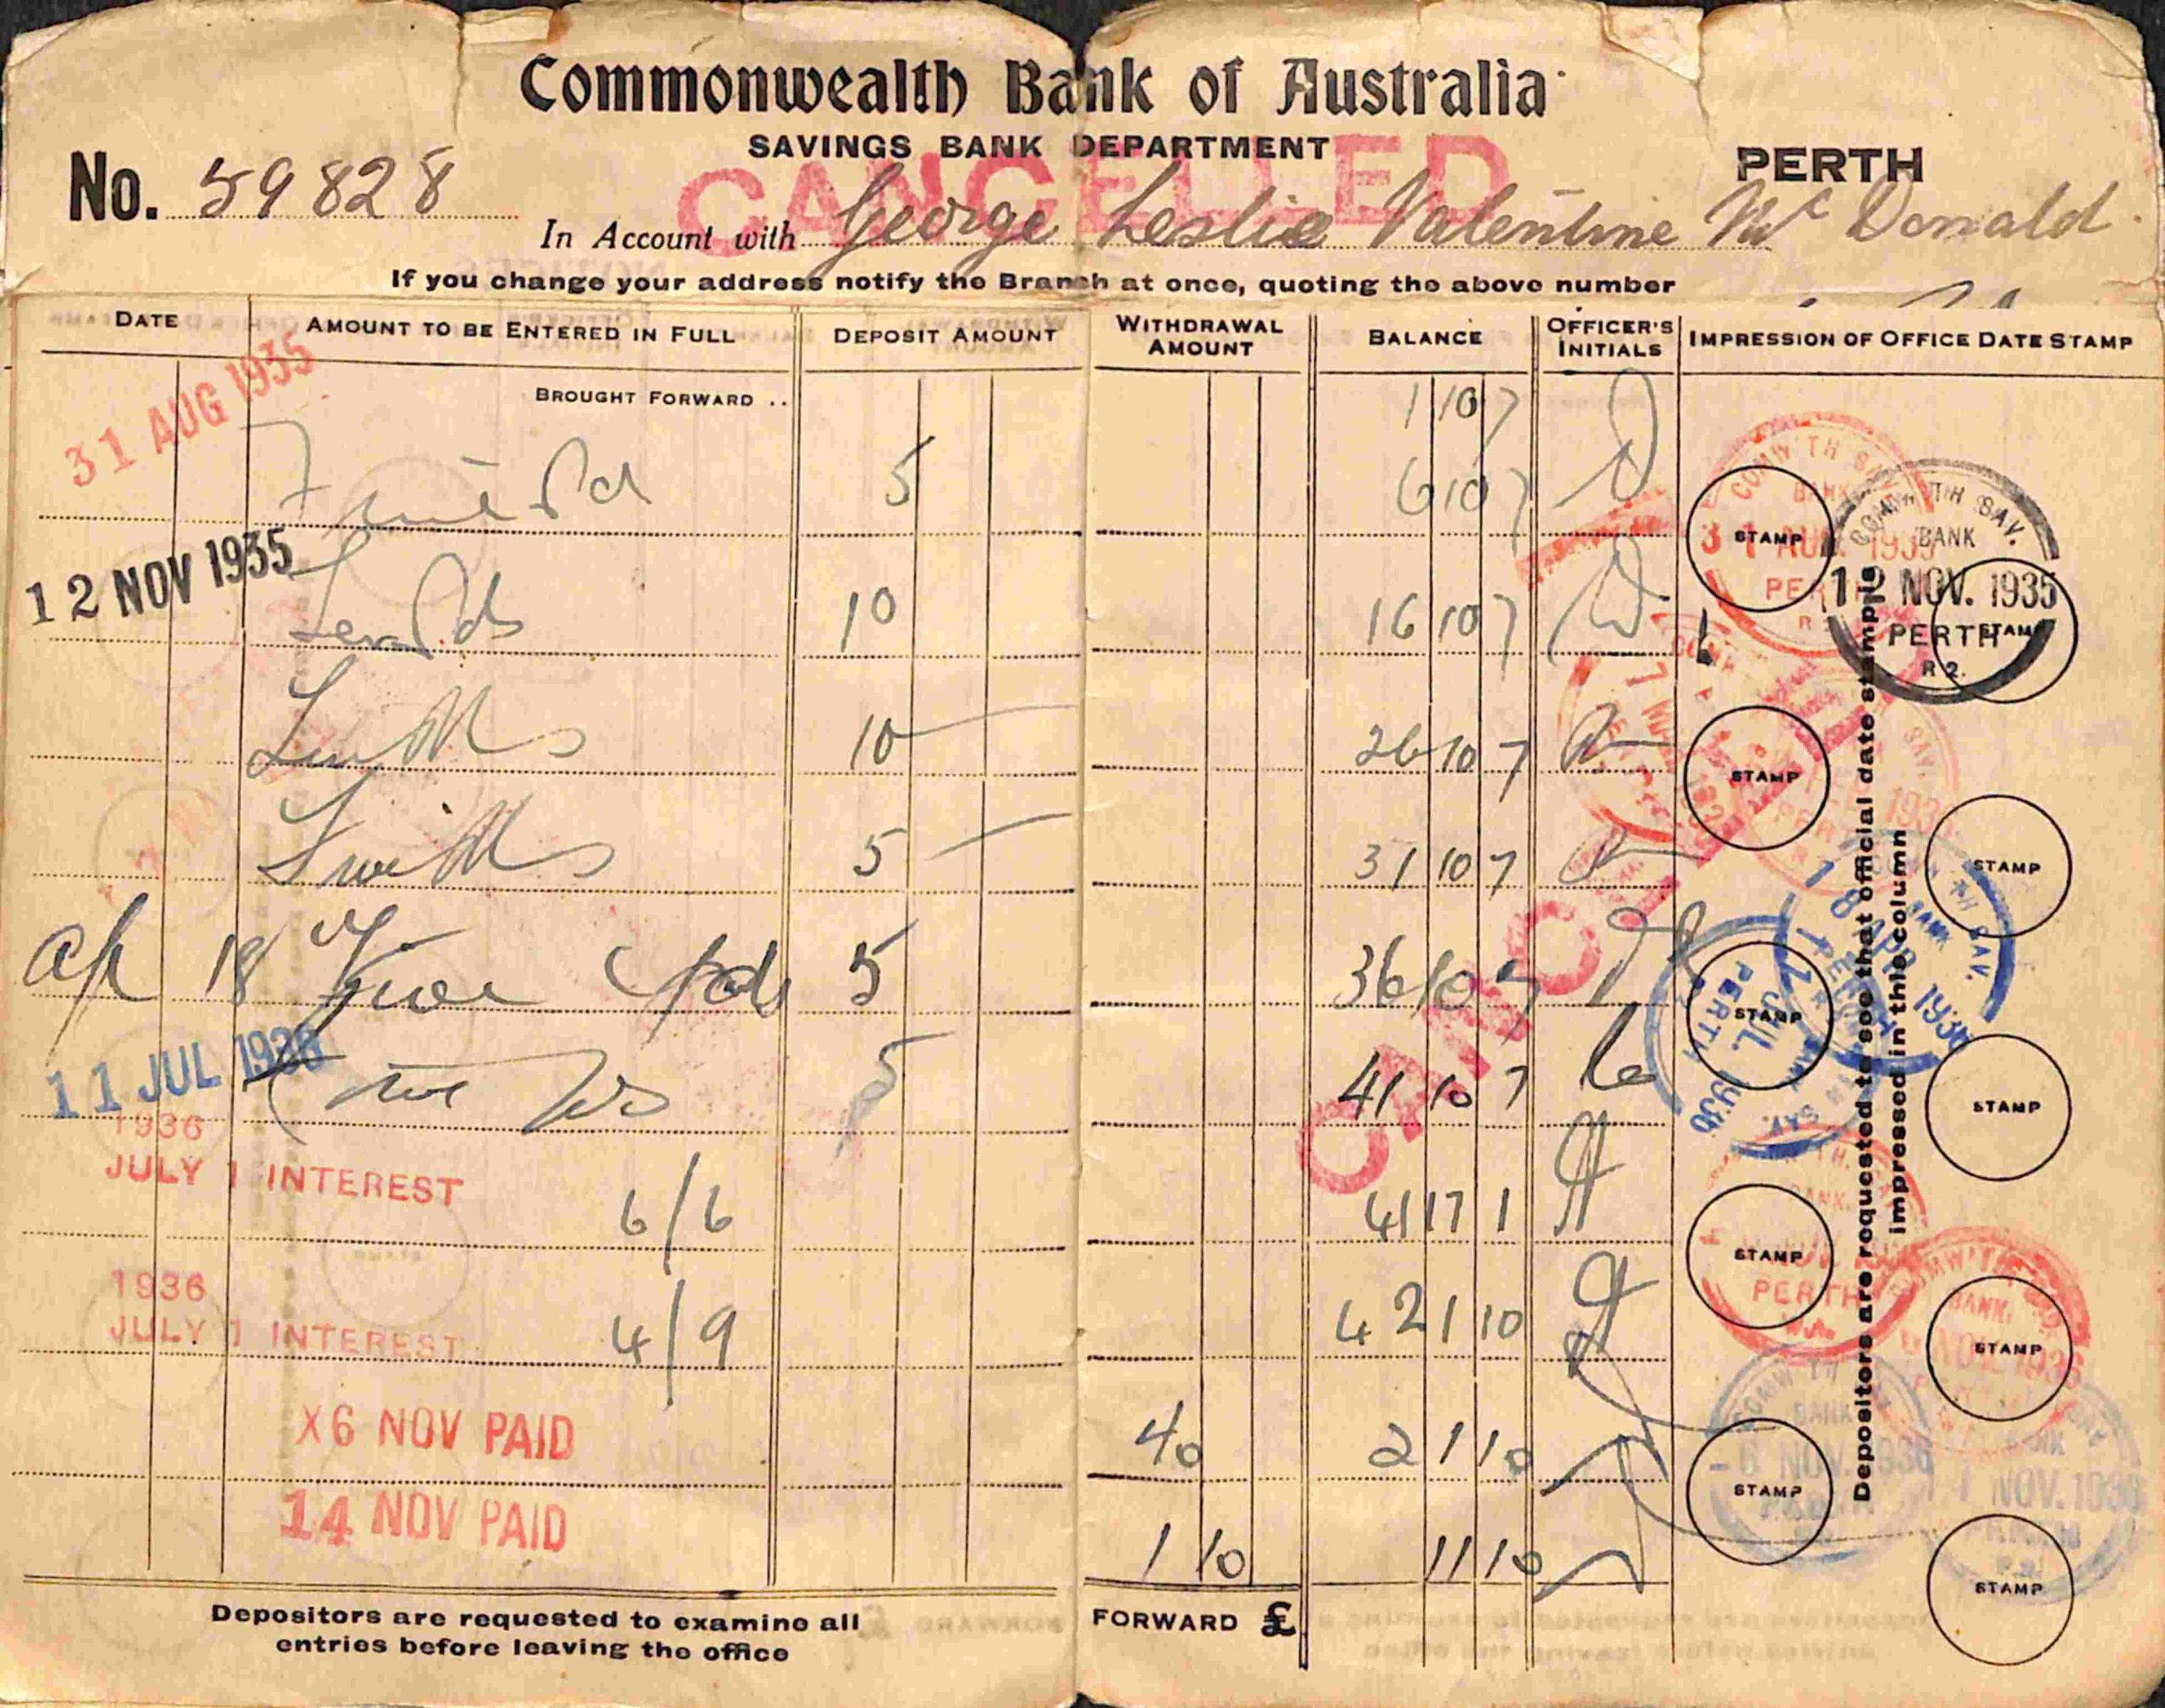 Commonwealth Bank of Australia
SAVINGS BANK DEPARTMENT
PERTH
CANCELLED
No. 59828
In Account with George Leslie Valentine McDonald
If you change your address notify the Branch at once, quoting the above number
DATE AMOUNT TO BE ENTERED IN FULL DEPOSIT AMOUNT WITHDRAWAL AMOUNT BALANCE OFFICER'S INITIALS IMPRESSION OF OFFICE DATE STAMP
BROUGHT FORWARD .. 1 10 7
31 AUG 1935 5 6 10 7
12 NOV 1935 10 16 10 7
10 26 10 7
5 31 10 7
Ap 18 Five 5 36 10 7
11 JUL 1936 Five 5 41 10 7
1936
JULY 1 INTEREST 6/6 41 17 1
1936
JULY 1 INTEREST 4/9 42 1 10
X6 NOV PAID 40 2 1 10
14 NOV PAID 1 10 11 10
FORWARD £
Depositors are requested to examine all
entries before leaving the office
COMW'TH SAV.
BANK
12 NOV. 1935
PERTH
R 2.
STAMP
STAMP
STAMP
STAMP
STAMP
STAMP
STAMP
STAMP
STAMP
STAMP
Depositors are requested to see that official date stamp is
impressed in this column